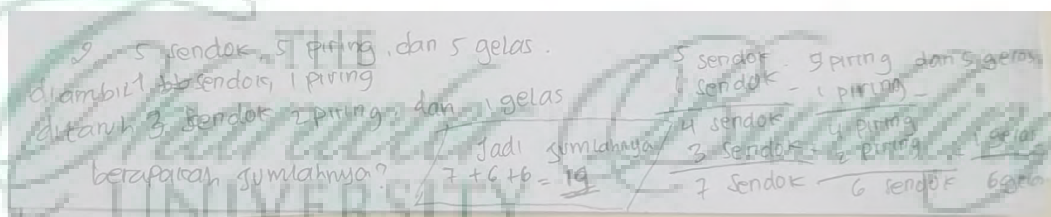 2 5 sendok, 5 piring, dan 5 gelas.
diambil 1 sendok, 1 piring
ditaruh 3 sendok 2 piring, dan 1 gelas
berapakah jumlahnya?
Jadi jumlahnya
7 + 6 + 6 = 19
5 sendok - 5 piring dan 5 gelas
1 sendok - 1 piring -
4 sendok 4 piring
3 sendok - 2 piring 1 gelas
7 sendok 6 sendok 6 gelas
UNIVERSITY